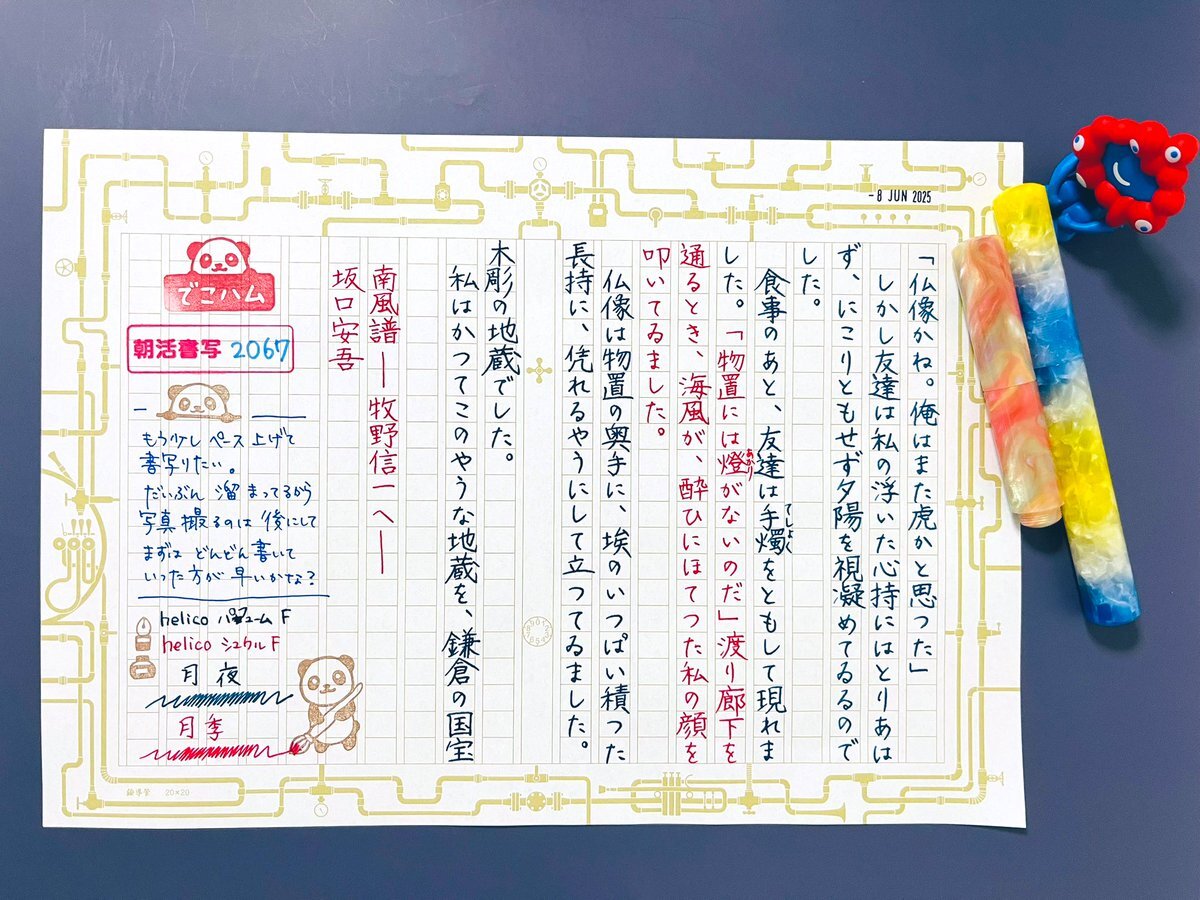 - 8 JUN 2025
「仏像かね。俺はまた虎かと思つた」
しかし友達は私の浮いた心持にはとりあは
ず、にこりともせず夕陽を視凝めてゐるので
した。
食事のあと、友達は手燭をともして現れま
てしょく
した。「物置には燈がないのだ」渡り廊下を
あかり
通るとき、海風が、酔ひにほてつた私の顔を
叩いてゐました。
仏像は物置の奥手に、埃のいつぱい積つた
長持に、凭れるやうにして立つてゐました。
木彫の地蔵でした。
私はかつてこのやうな地蔵を、鎌倉の国宝
南風譜―牧野信一へ―
坂口安吾
でこハム
朝活書写 2067
もう少しペース上げて
書写りたい。
だいぶん溜まってるから
写真撮るのは後にして
まずはどんどん書いて
いった方が早いかな?
helico パフューム F
helico シュクル F
月夜
月季
20×20